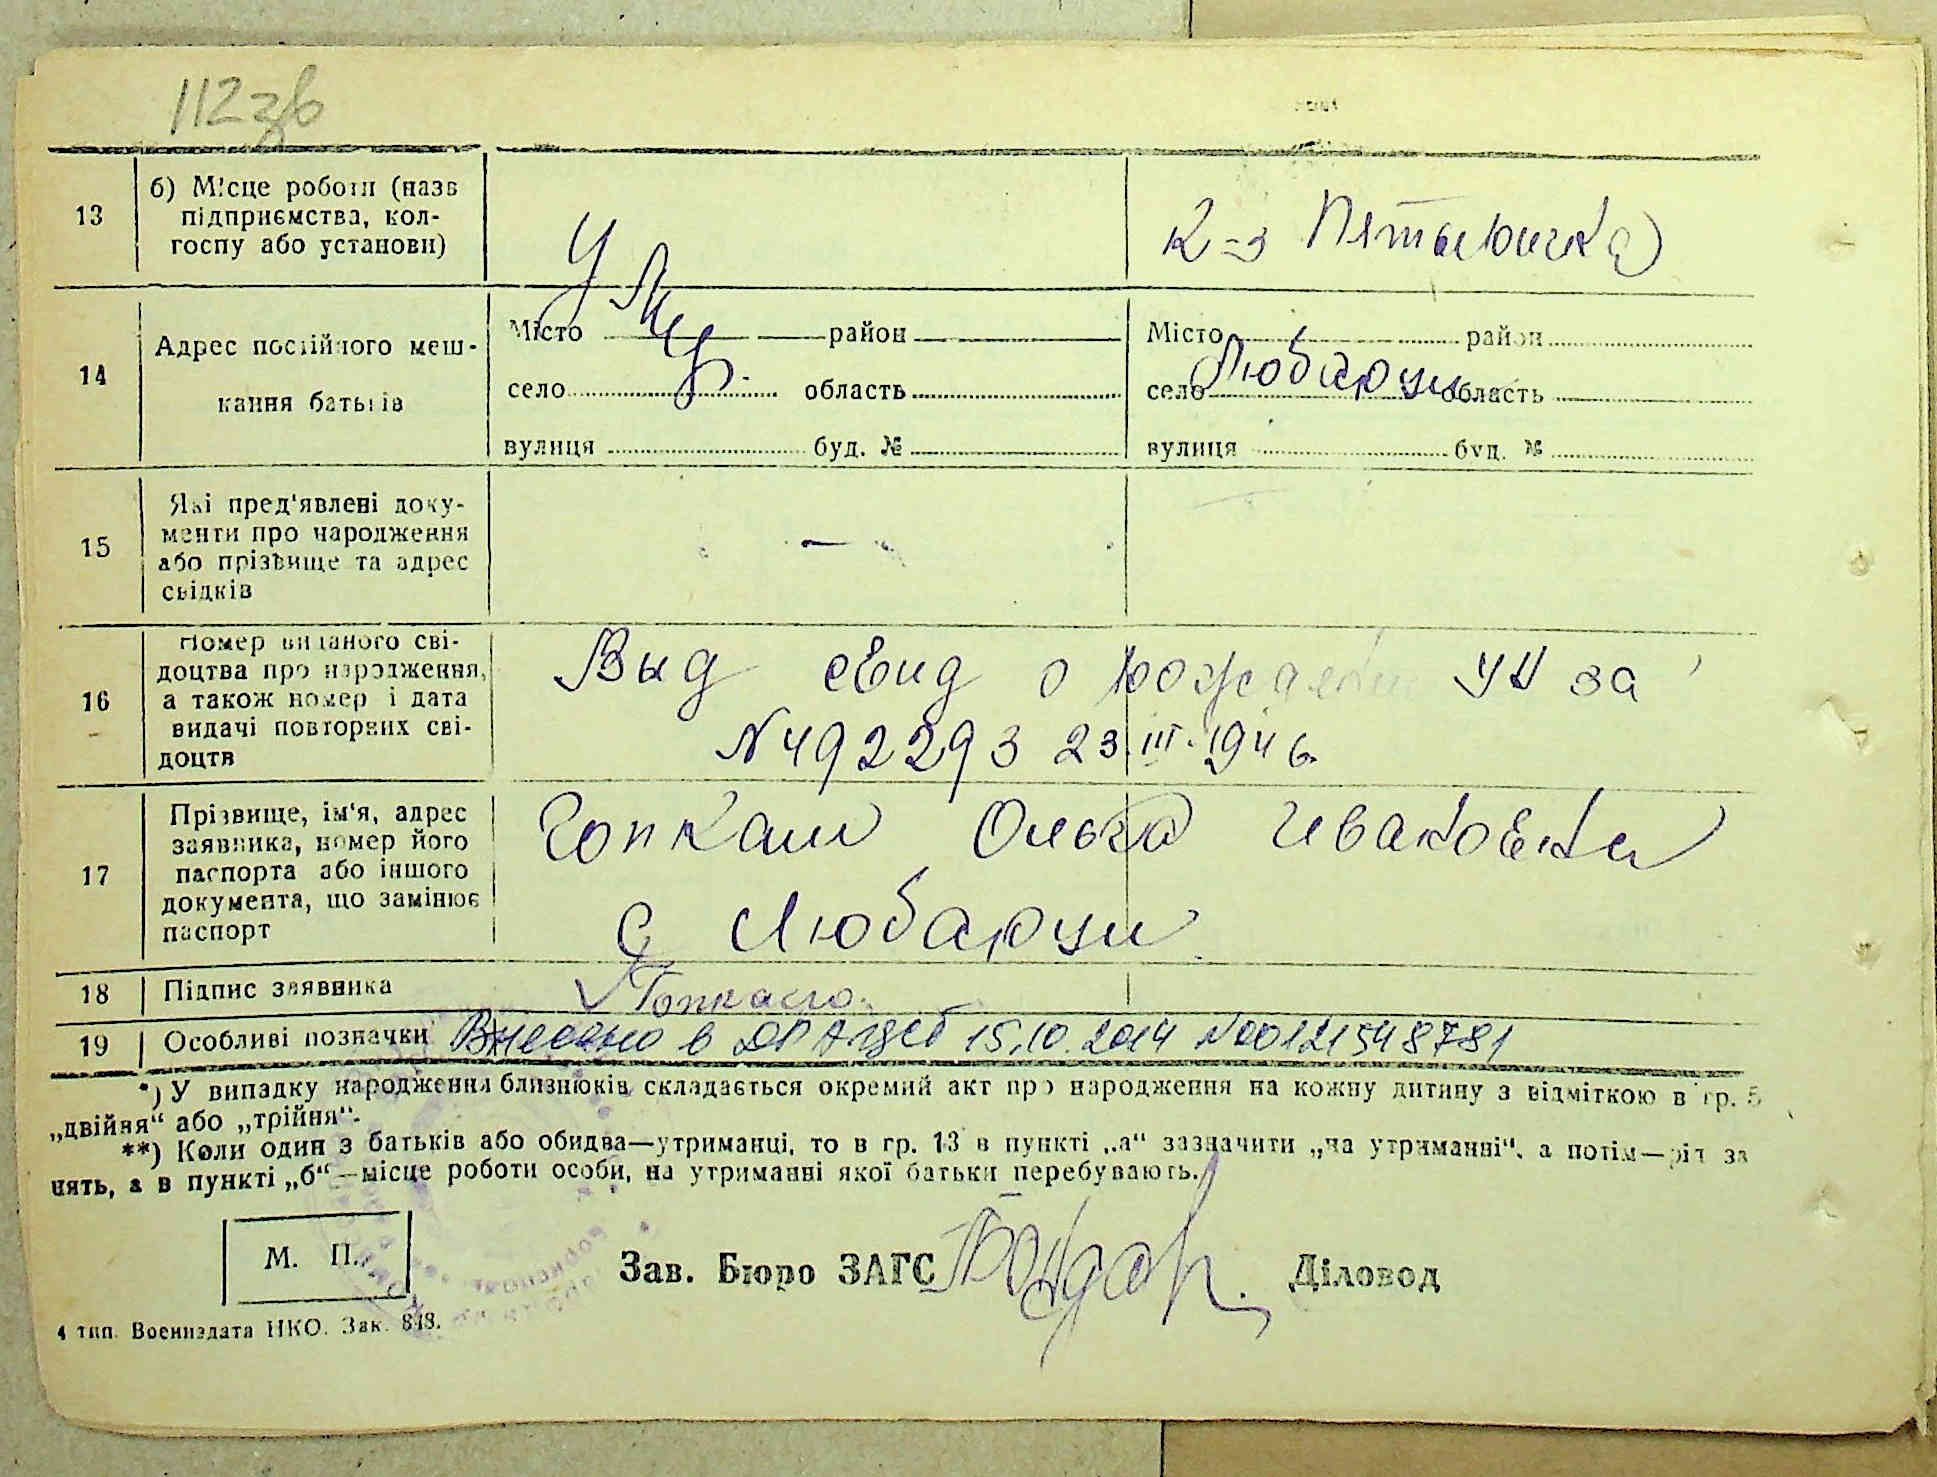 112зв
13
б) Місце роботи (назв
підприємства, кол-
госпу або установи)
Умер.
к-з Пятылитка
14
Адрес постійного меш-
кання батьків
Місто район
село область
вулиця буд. №
Місто район
село Любарци область
вулиця буд. №
15
Які пред'явлені доку-
менти про народження
або прізвище та адрес
свідків
—
16
Номер виданого сві-
доцтва про народження,
а також номер і дата
видачі повторних сві-
доцтв
Выд свид о рождении УИ за
N 492293 23.III.1946.
17
Прізвище, ім'я, адрес
заявника, номер його
паспорта або іншого
документа, що замінює
паспорт
Гопкало Ольга Ивановна
с Любарци
18
Підпис заявника
Гопкало.
19
Особливі позначки
Внесено в ДРАЦСГ 15.10.2014 N00121548781
*) У випадку народження близнюків складається окремий акт про народження на кожну дитину з відміткою в гр. 5
„двійня“ або „трійня“.
**) Коли один з батьків або обидва—утриманці, то в гр. 13 в пункті „а“ зазначити „на утриманні“, а потім—рід за
нять, а в пункті „б“—місце роботи особи, на утриманні якої батьки перебувають.
М. П.
Зав. Бюро ЗАГС
Діловод
4 тип. Воениздата НКО. Зак. 848.